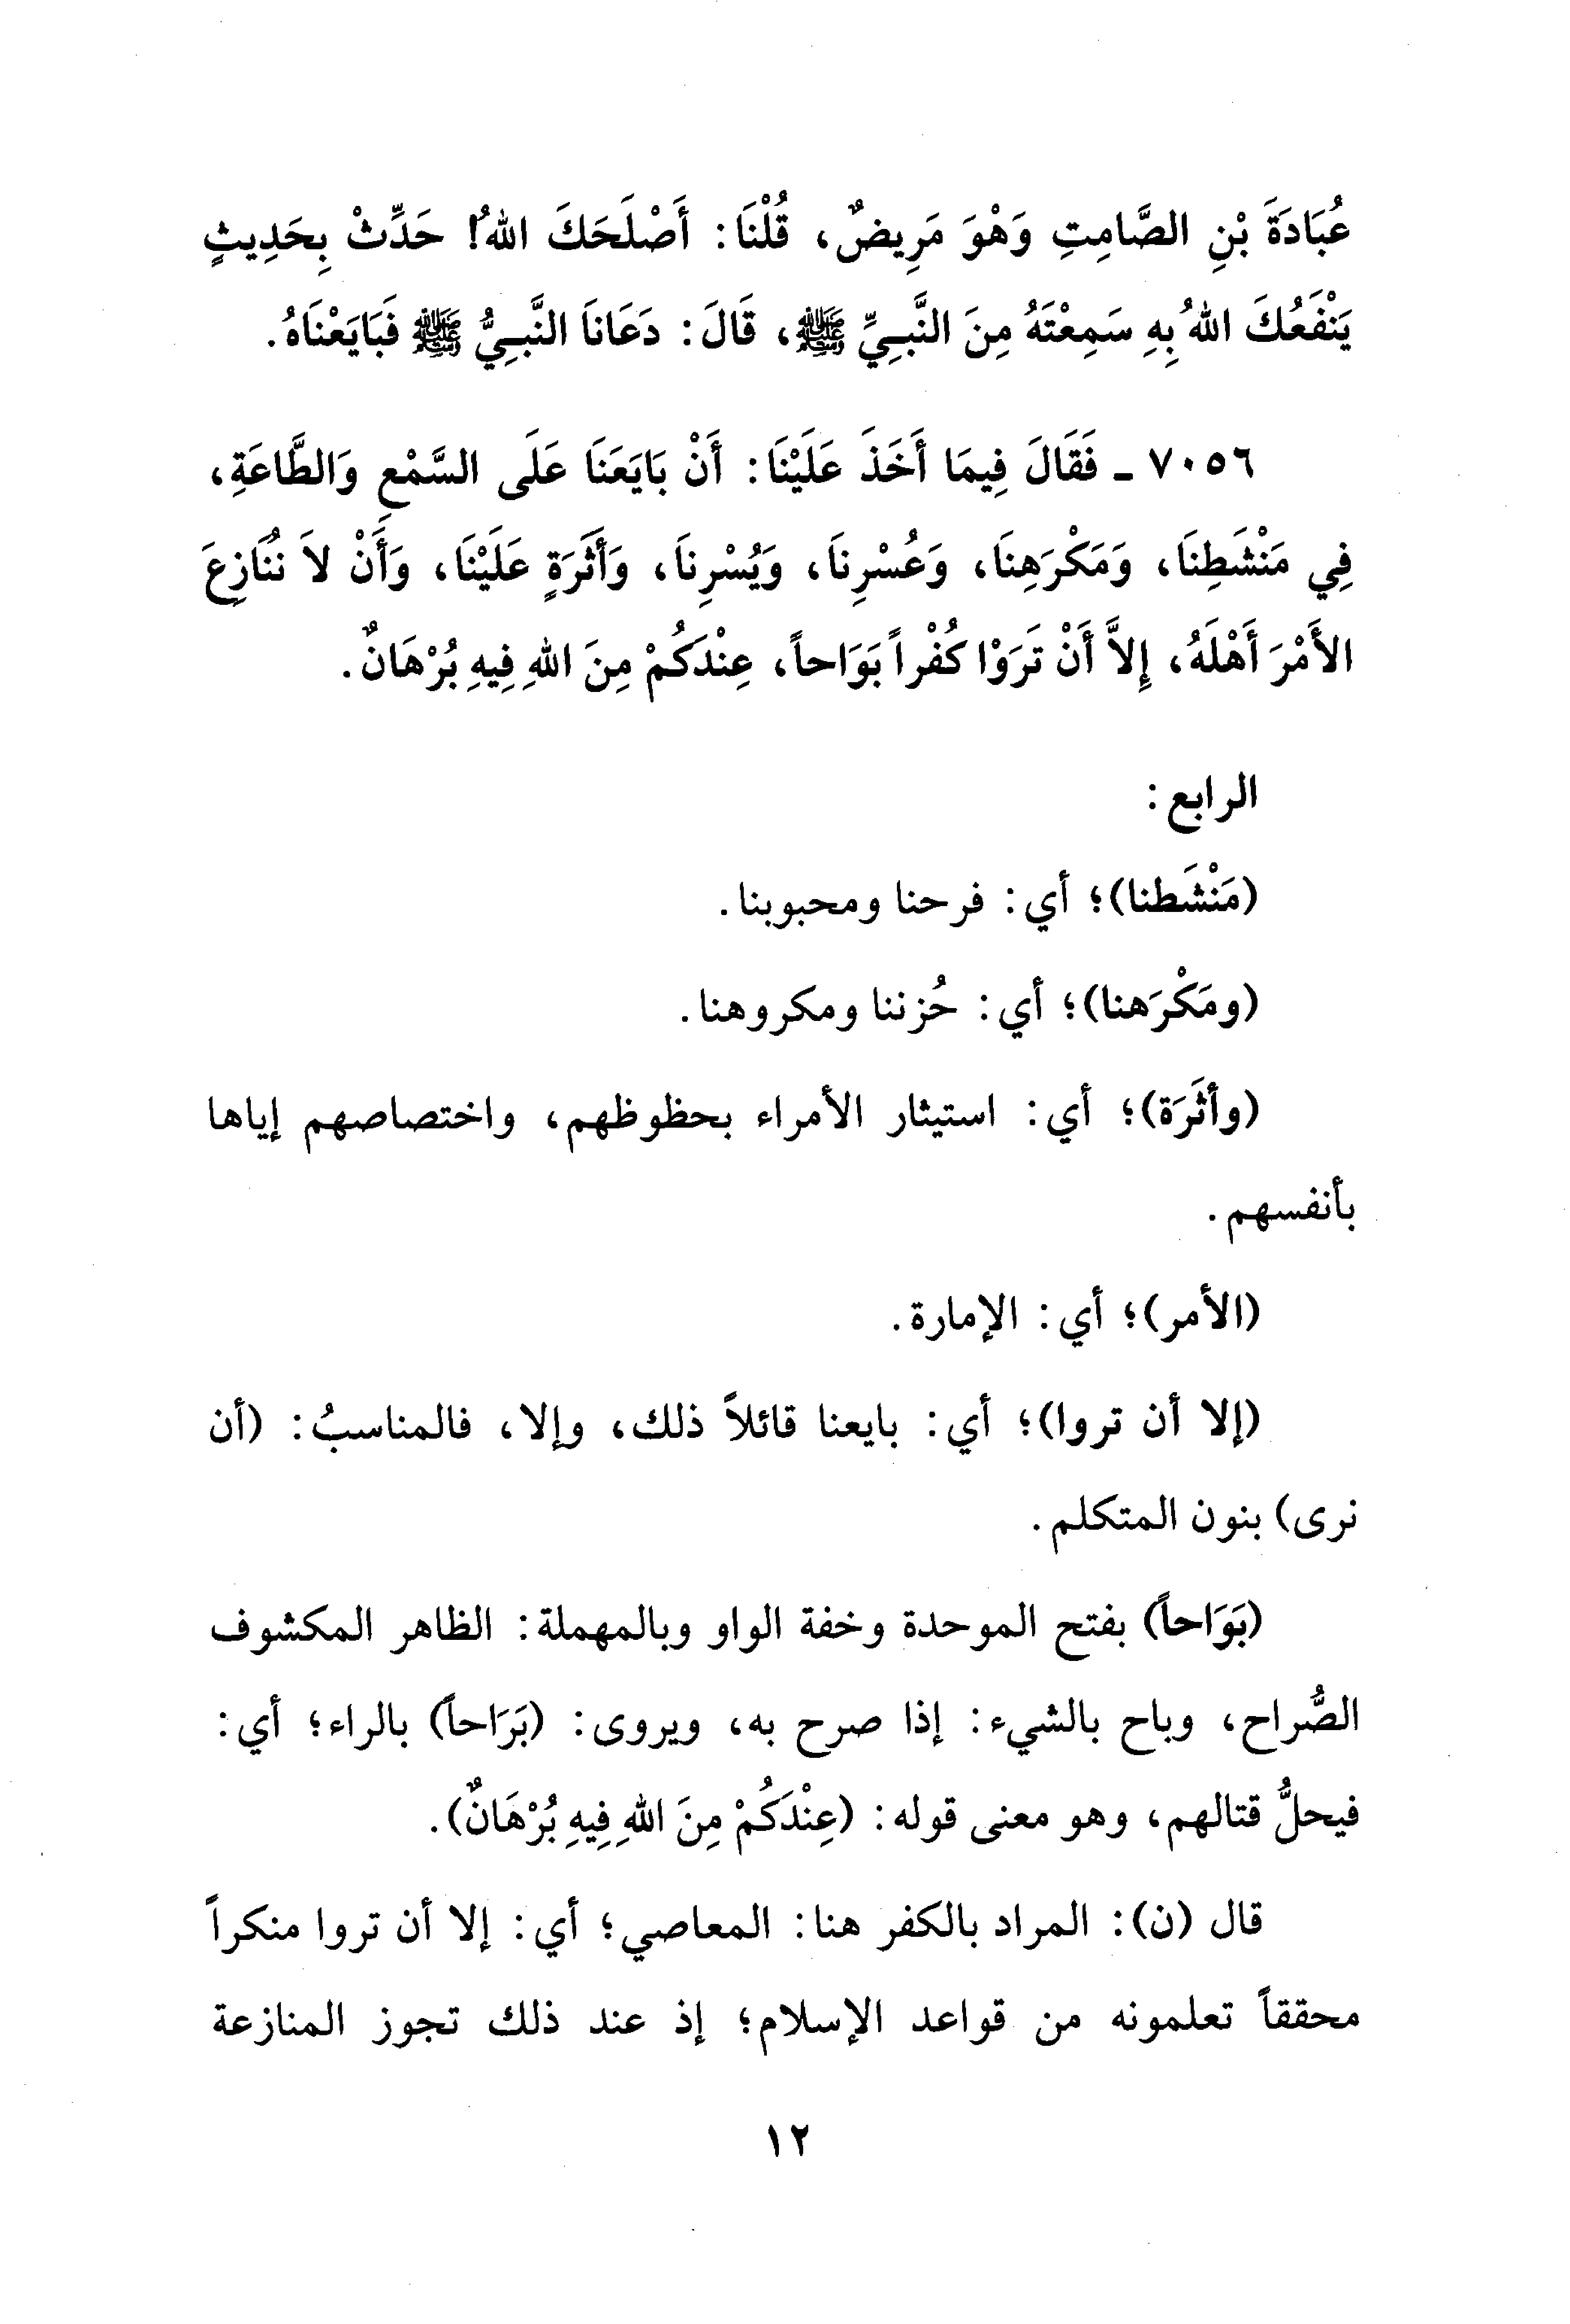 عُبَادَةَ بْنِ الصَّامِتِ وَهْوَ مَرِيضٌ، قُلْنَا: أَصْلَحَكَ اللهُ! حَدِّثْ بِحَدِيثٍ
يَنْفَعُكَ اللهُ بِهِ سَمِعْتَهُ مِنَ النَّبِيِّ ﷺ، قَالَ: دَعَانَا النَّبِيُّ ﷺ فَبَايَعْنَاهُ.
٧٠٥٦ ـ فَقَالَ فِيمَا أَخَذَ عَلَيْنَا: أَنْ بَايَعَنَا عَلَى السَّمْعِ وَالطَّاعَةِ،
فِي مَنْشَطِنَا، وَمَكْرَهِنَا، وَعُسْرِنَا، وَيُسْرِنَا، وَأَثَرَةٍ عَلَيْنَا، وَأَنْ لاَ نُنَازِعَ
الأَمْرَ أَهْلَهُ، إِلاَّ أَنْ تَرَوْا كُفْراً بَوَاحاً، عِنْدَكُمْ مِنَ اللهِ فِيهِ بُرْهَانٌ.
الرابع:
(مَنْشَطنا)؛ أي: فرحنا ومحبوبنا.
(ومَكْرَهنا)؛ أي: حُزننا ومكروهنا.
(وأثَرَة)؛ أي: استيثار الأمراء بحظوظهم، واختصاصهم إياها
بأنفسهم.
(الأمر)؛ أي: الإمارة.
(إلا أن تروا)؛ أي: بايعنا قائلاً ذلك، وإلا، فالمناسبُ: (أن
نرى) بنون المتكلم.
(بَوَاحاً) بفتح الموحدة وخفة الواو وبالمهملة: الظاهر المكشوف
الصُّراح، وباح بالشيء: إذا صرح به، ويروى: (بَرَاحاً) بالراء؛ أي:
فيحلُّ قتالهم، وهو معنى قوله: (عِنْدَكُمْ مِنَ اللهِ فِيهِ بُرْهَانٌ).
قال (ن): المراد بالكفر هنا: المعاصي؛ أي: إلا أن تروا منكراً
محققاً تعلمونه من قواعد الإسلام؛ إذ عند ذلك تجوز المنازعة
١٢